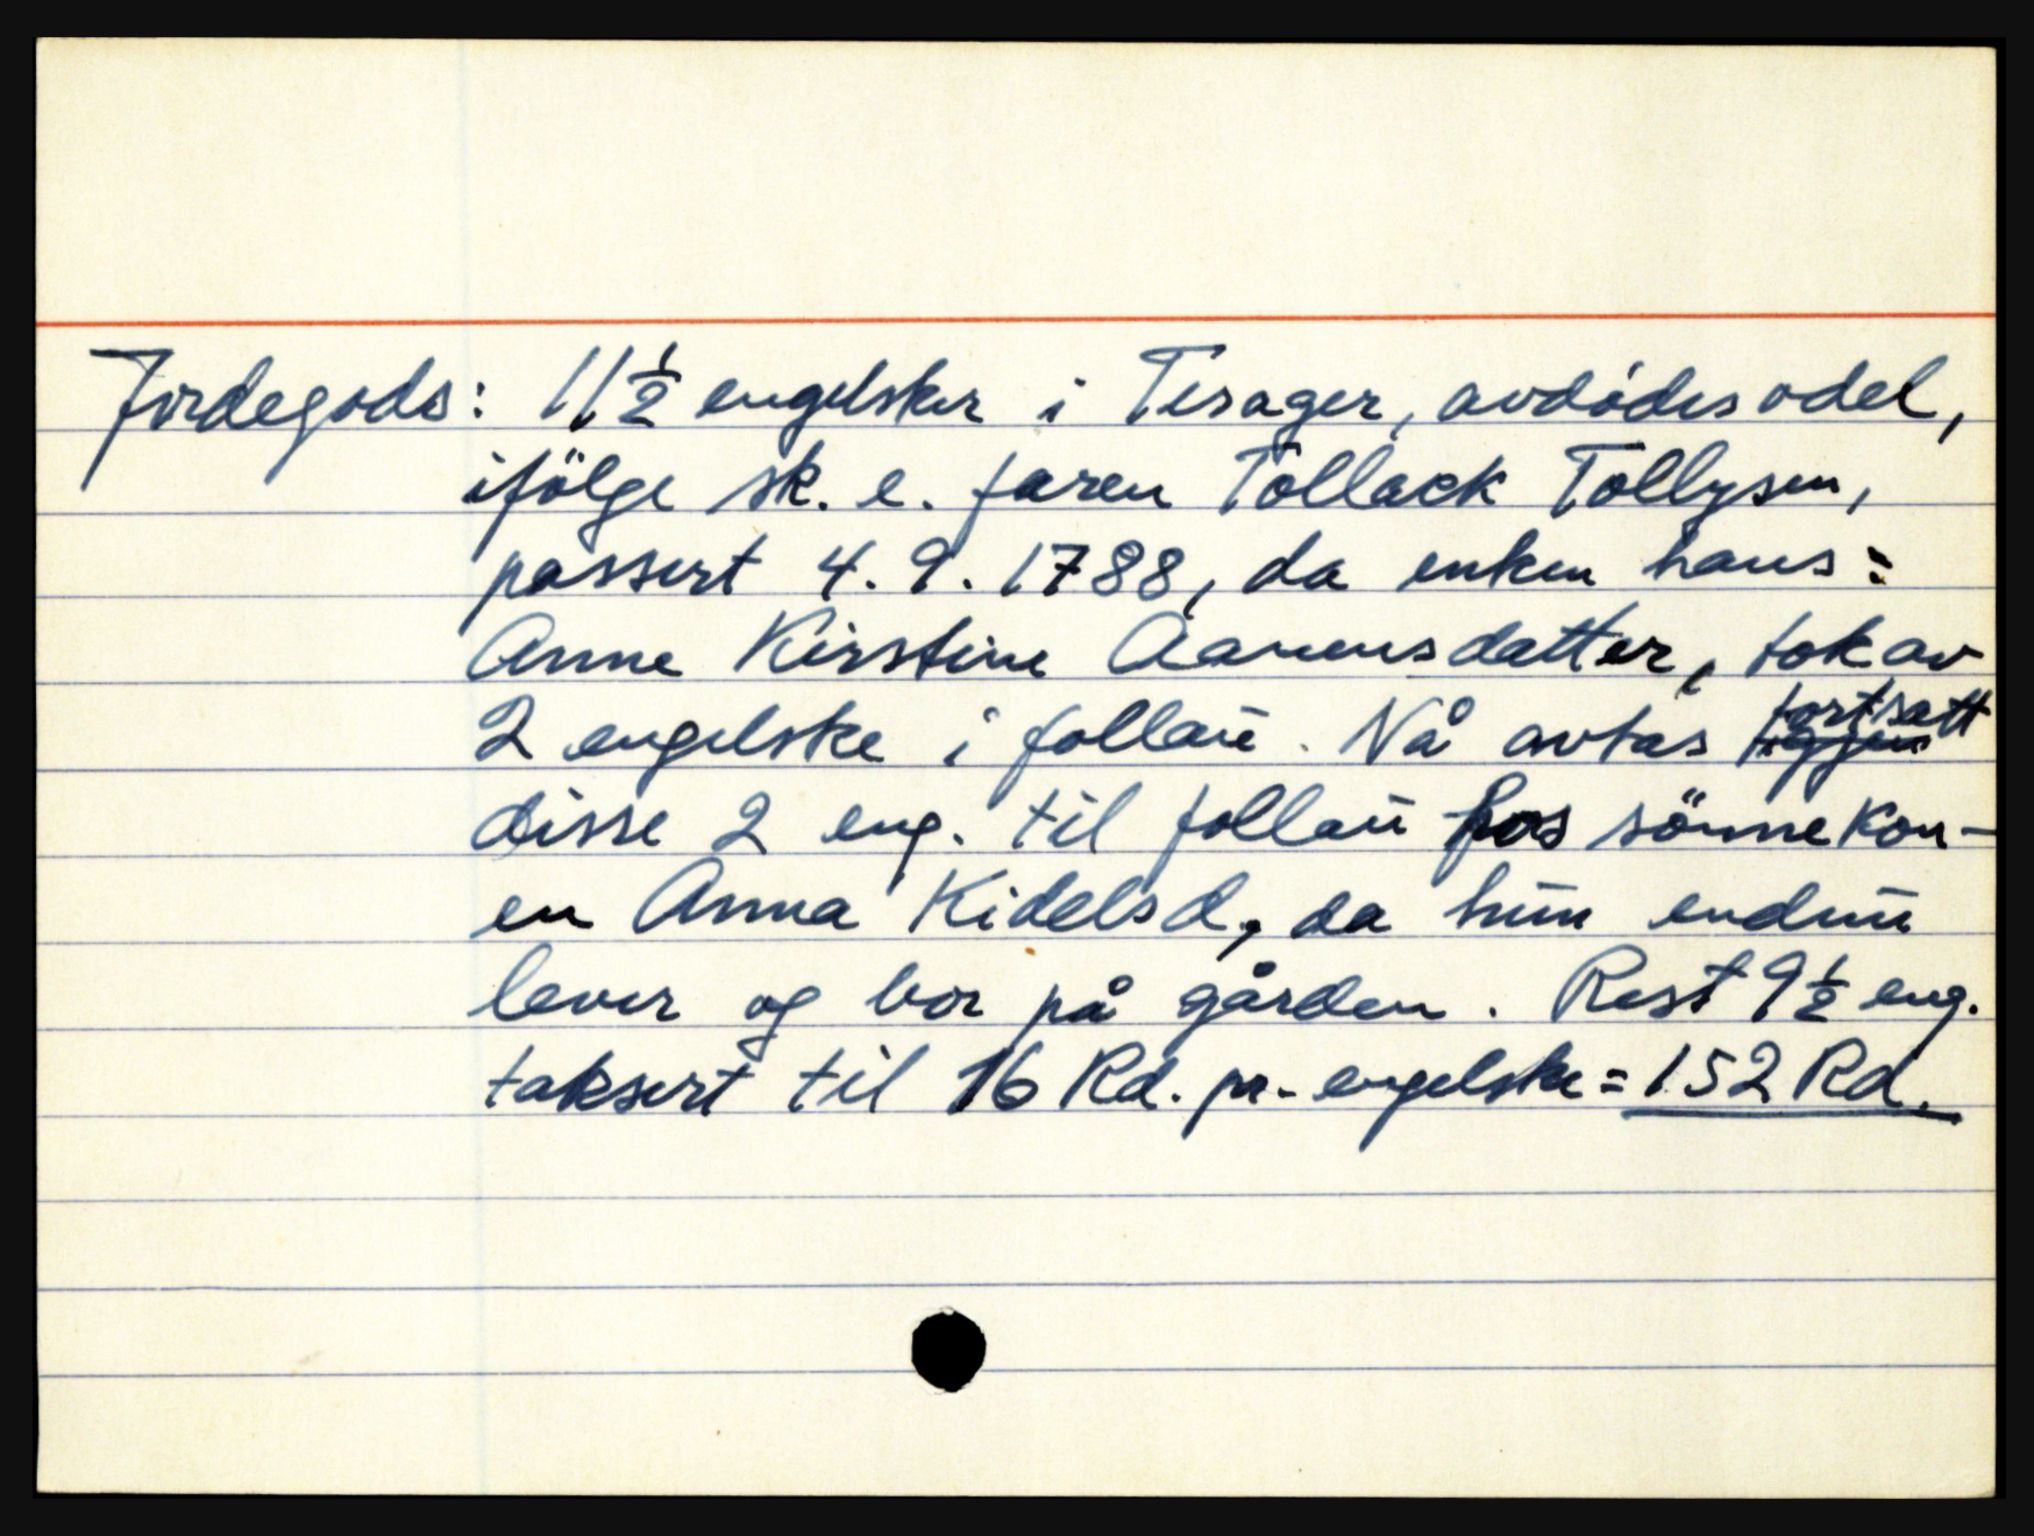 Jordegods: 11½ engelsker i Tesager, avdødes odel,
ifölge sk. e. faren Tollack Tollysen,
passert 4.9.1788, da enken hans:
Anne Kirstine Aanensdatter, tok av
2 engelske i follau. Nå avtas fortsatt
disse 2 eng. til follau hos sönnekon-
en Anna Kidelsd, da hun endnu
lever og bor på gården. Rest 9½ eng.
taksert til 16 Rd. pr. engelske = 152 Rd.